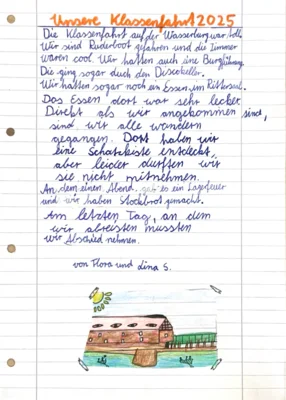 Unsere Klassenfahrt 2025
Die Klassenfahrt auf der Wasserburg war toll.
Wir sind Ruderboot gefahren und die Zimmer
waren cool. Wir hatten auch eine Burgführung.
Die ging sogar durch den Discokeller.
Wir hatten sogar noch ein Essen im Rittersaal.
Das Essen dort war sehr lecker.
Direkt als wir angekommen sind,
sind wir alle wandern
gegangen. Dort haben wir
eine Schatzkiste entdeckt,
aber leider durften wir
sie nicht mitnehmen.
An dem einen Abend gab es ein Lagerfeuer
und wir haben Stockbrot gemacht.
Am letzten Tag, an dem
wir abreisen mussten
wir Abschied nehmen.
von Flora und Lina S.